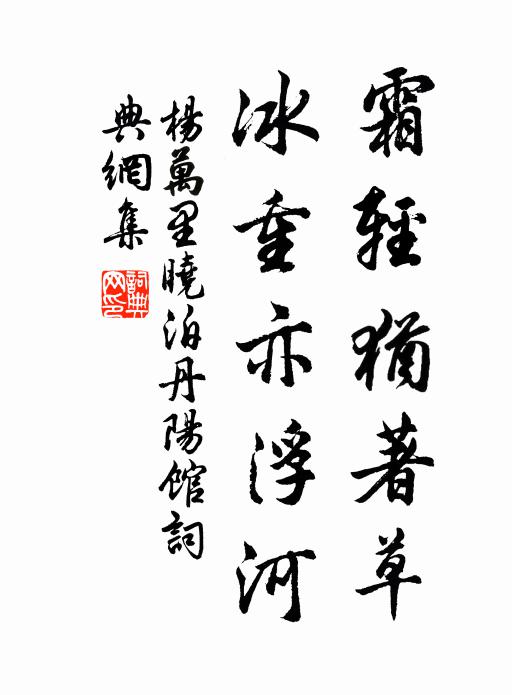 霜輕猶著草
冰重亦浮河
楊萬里曉泊丹陽館詞
典網集
詞典網印